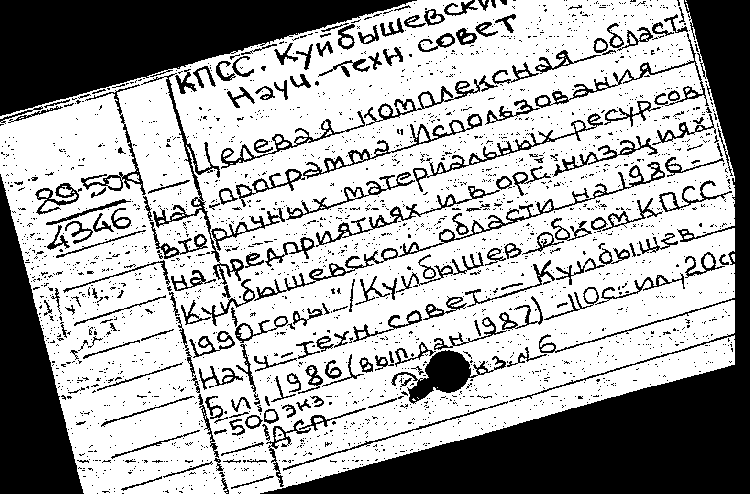 КПСС. Куйбышевский
Науч.-техн. совет
Целевая комплексная област-
89-50к
4346
ная программа "Использования
вторичных материальных ресурсов
на предприятиях и в организациях
Куйбышевской области на 1986-
1990 годы"/Куйбышев. обком КПСС.
Науч.-техн. совет. - Куйбышев:
Б.и., 1986 (вып. дан. 1987) -110с.: ил.; 20см
-500 экз.
ДСП. экз. N 6